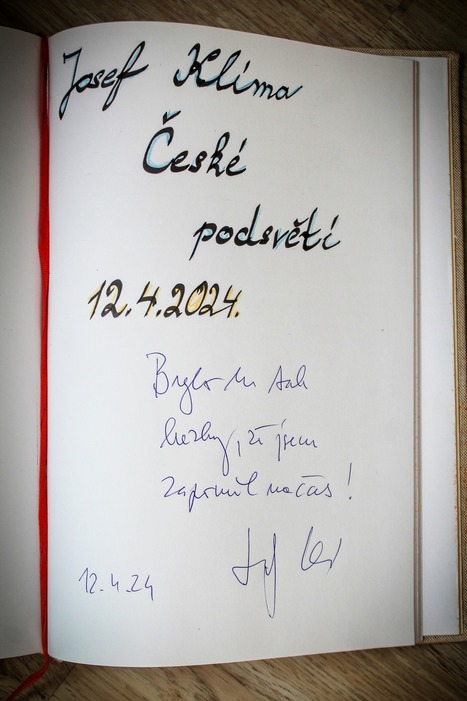 Josef Klíma
České
podsvětí
12.4.2024.
Bylo tu tak
hezky, že jsem
zapomněl na čas!
12.4.24